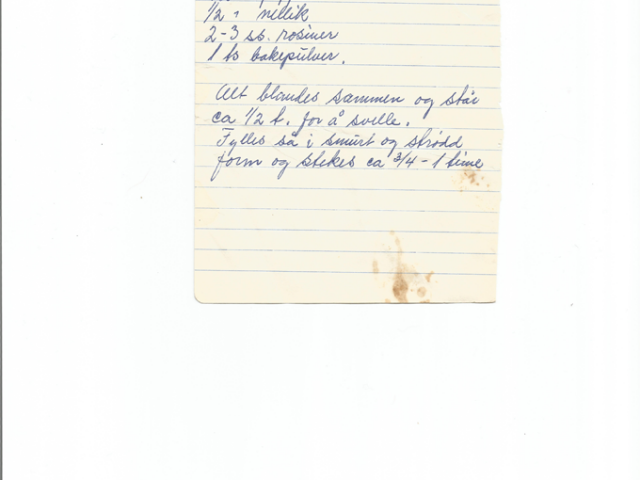 1/2 " nellik
2-3 ss. rosiner
1 ts bakepulver.
Alt blandes sammen og står
ca 1/2 t. for å svelle.
Fylles så i smurt og strødd
form og stekes ca 3/4 - 1 time